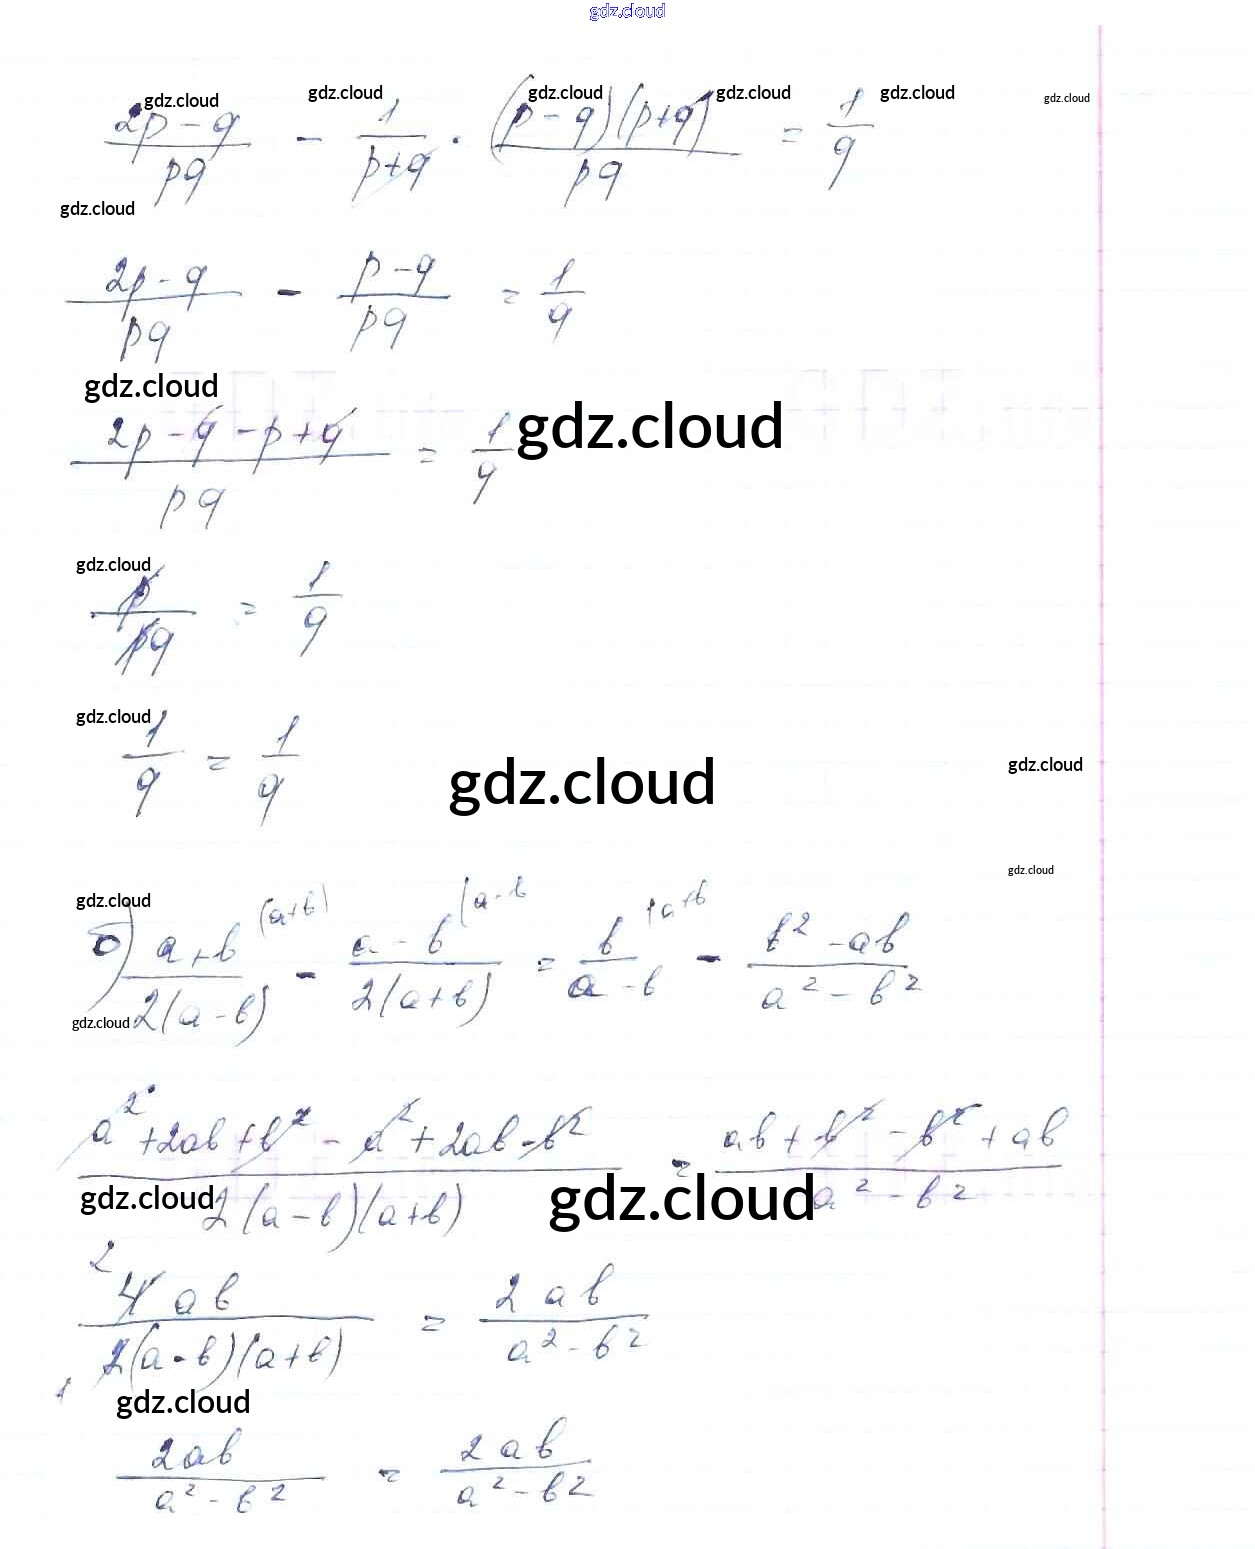 gdz.cloud
gdz.cloud gdz.cloud gdz.cloud gdz.cloud gdz.cloud gdz.cloud
(2p - q)/(pq) - 1/(p+q) · ((p - q)(p+q))/(pq) = 1/q
gdz.cloud
(2p - q)/(pq) - (p - q)/(pq) = 1/q
gdz.cloud
gdz.cloud
(2p - q - p + q)/(pq) = 1/q
gdz.cloud
p/(pq) = 1/q
gdz.cloud
1/q = 1/q
gdz.cloud gdz.cloud
gdz.cloud
gdz.cloud
б) (a+b)/(2(a-b)) (a+b) - (a-b)/(2(a+b)) (a-b = b/(a-b) (a+b - (b² - ab)/(a² - b²)
gdz.cloud
(a² + 2ab + b² - a² + 2ab - b²)/(2(a-b)(a+b)) = (ab + b² - b² + ab)/(a² - b²)
gdz.cloud gdz.cloud
2 4ab/(2(a-b)(a+b)) 1 = 2ab/(a² - b²)
gdz.cloud
2ab/(a² - b²) = 2ab/(a² - b²)